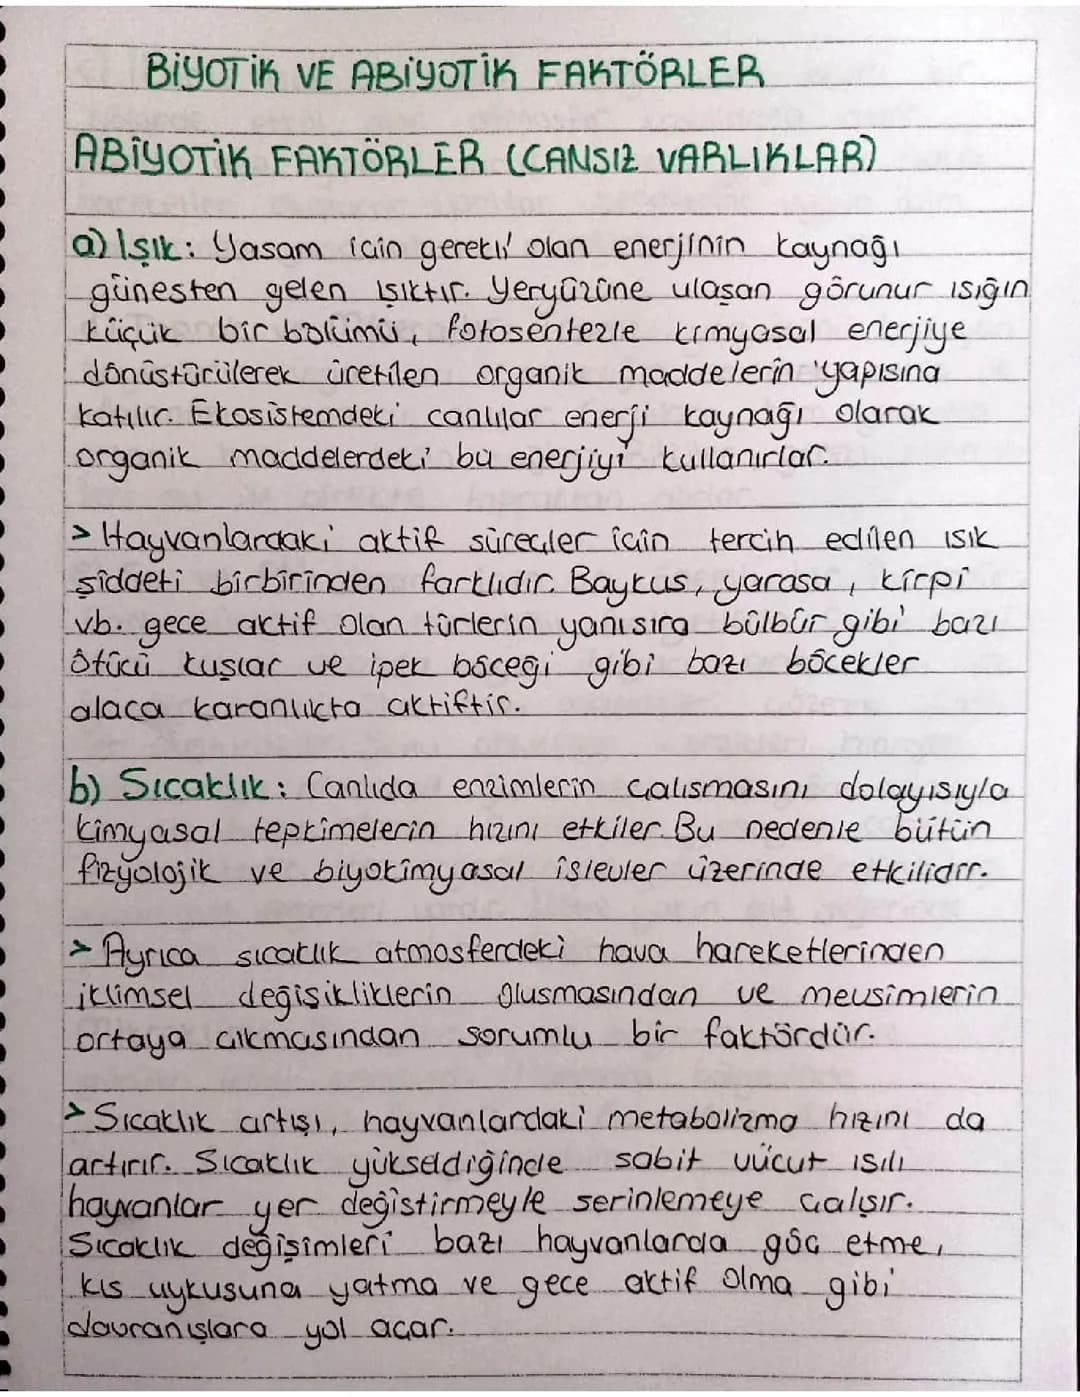 BİYOTİK VE ABİYOTİK FAKTÖRLER
ABİYOTİK FAKTÖRLER (CANSIZ VARLIKLAR)
a) Işık: Yaşam için gerekli olan enerjinin kaynağı
güneşten gelen ışıktır. Yeryüzüne ulaşan görünur ışığın
küçük bir bölümü, fotosentezle kimyasal enerjiye
dönüştürülerek üretilen organik maddelerin yapısına
katılır. Ekosistemdeki canlılar enerji kaynağı olarak
organik maddelerdeki bu enerjiyi kullanırlar.
> Hayvanlardaki aktif süreçler için tercih edilen ışık
şiddeti birbirinden farklıdır. Baykuş, yarasa, kirpi
vb. gece aktif olan türlerin yanısıra bülbür gibi bazı
ötücü kuşlar ve ipek böceği gibi bazı böcekler
alaca karanlıkta aktiftir.
b) Sıcaklık: Canlıda enzimlerin çalışmasını dolayısıyla
kimyasal tepkimelerin hızını etkiler. Bu nedenle bütün
fizyolojik ve biyokimyasal işlevler üzerinde etkilidir.
> Ayrıca sıcaklık atmosferdeki hava hareketlerinden
iklimsel değişikliklerin oluşmasından ve mevsimlerin
ortaya çıkmasından sorumlu bir faktördür.
> Sıcaklık artışı, hayvanlardaki metabolizma hızını da
artırır. Sıcaklık yükseldiğinde sabit vücut ısılı
hayvanlar yer değiştirmeyle serinlemeye çalışır.
Sıcaklık değişimleri bazı hayvanlarda göç etme,
kış uykusuna yatma ve gece aktif olma gibi
davranışlara yol açar.